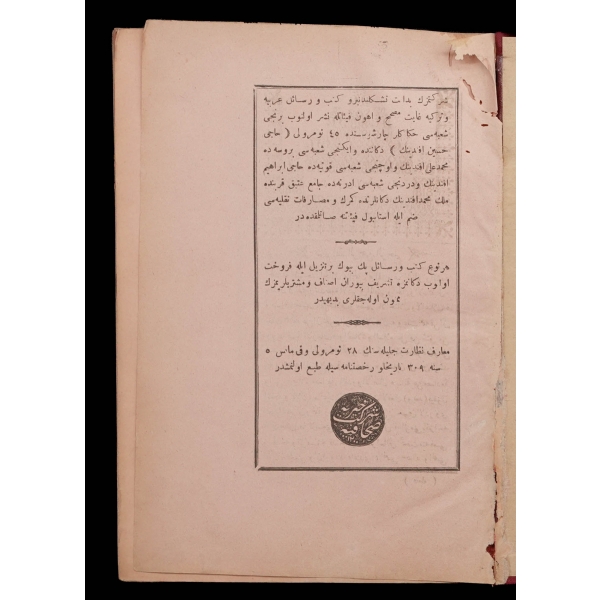 شركتمزك بدايت تشكلندنبرو كتب و رسائل عربيه
و تركيه غايت مصحح و اهون فيئاتله نشر اولنوب برنجى
شعبه‌سى حكاكلر چارشيسنده ٤٥ نومرولى ( حاجى
حسين افندينك ) دكاننده و ايكنجى شعبه‌سى بروسه‌ده
محمد على افندينك و اوچنجى شعبه‌سى قونيه‌ده حاجى ابراهيم
افندينك و دردنجى شعبه‌سى ادرنه‌ده جامع عتيق قربنده
ملك محمد افندينك دكانلرنده كمرك و مصارفات نقليه‌سى
ضم ايله استانبول فيئاتنه صاتلمقده‌در
هر نوع كتب و رسائل پك بيوك بر تنزيل ايله فروخت
اولنوب دكانمزه تشريف بيوران اصناف و مشتريلريمزك
ممنون اوله‌جقلرى بديهيدر
معارف نظارت جليله‌سنك ٢٨ نومرولى و فى مارس ٥
سنه ٣٠٩ تاريخلو رخصتنامه‌سيله طبع اولنمشدر
شركت خيريه صحافيه